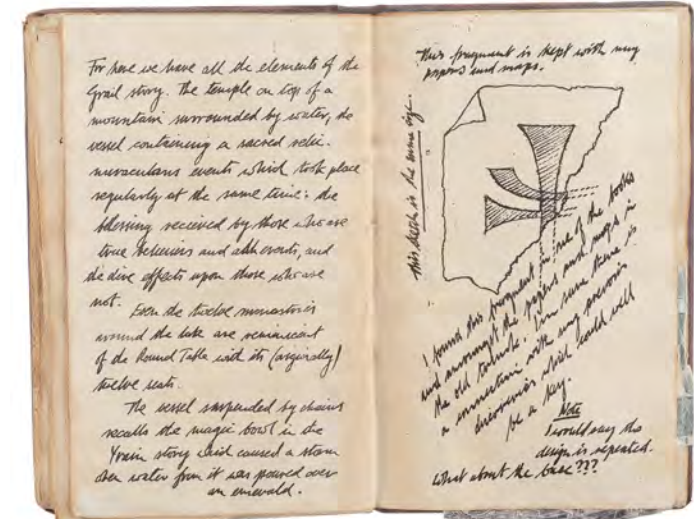 For here we have all the elements of the
Grail story. The temple on top of a
mountain surrounded by water, the
vessel containing a sacred relic.
miraculous events which took place
regularly at the same time: the
blessing recieved by those who are
true believers and all events, and
the dire effects upon those who are
not.
Even the twelve monasteries
around the lake are reminiscent
of the Round Table with its (originally)
twelve seats.
The vessel suspended by chains
recalls the magic bowl in the
Yvain story and caused a storm
when water from it was poured over
an emerald.
This fragment is kept with my
papers and maps.
this sketch is the same size.
I found this fragment in one of the books
and amongst the papers and maps in
the old trunk. I'm sure there is
a connection with my previous
discoveries which could well
be a key.
Note
I would say the
design is repeated.
What about the base???